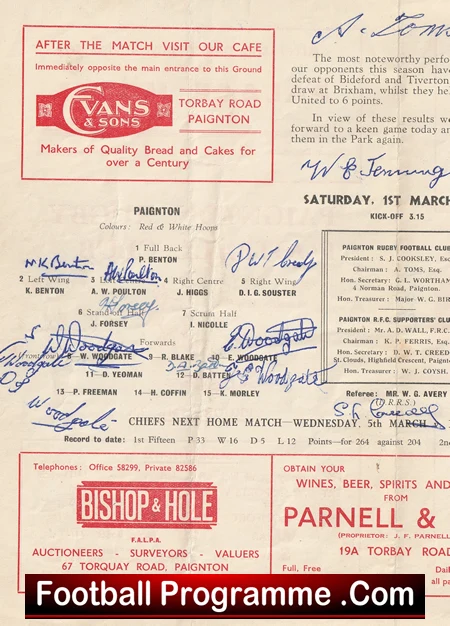 AFTER THE MATCH VISIT OUR CAFE
Immediately opposite the main entrance to this Ground
EVANS
& SONS
TORBAY ROAD
PAIGNTON
Makers of Quality Bread and Cakes for
over a Century
A. Toms
The most noteworthy perfo
our opponents this season have
defeat of Bideford and Tiverton
draw at Brixham, whilst they he
United to 6 points.
In view of these results we
forward to a keen game today an
them in the Park again.
SATURDAY, 1ST MARC
KICK-OFF 3.15
PAIGNTON
Colours: Red & White Hoops
1 Full Back
P. BENTON
N.K. Benton
A.W. Poulton
2 Left Wing
4 Right Centre
5 Right Wing
K. BENTON
A. W. POULTON
J. HIGGS
D. I. G. SOUSTER
6 Stand-off Half
7 Scrum Half
J. FORSEY
I. NICOLLE
Forwards
8—W. WOODGATE
9—R. BLAKE
10—E. WOODGATE
11—D. YEOMAN
12—D. BATTEN
13—P. FREEMAN
14—H. COFFIN
15—K. MORLEY
E. Woodgate
PAIGNTON RUGBY FOOTBALL CLUB
President : S. J. COOKSLEY, Esc
Chairman : A. TOMS, Esq.
Hon. Secretary : G. L. WORTHAN
4 Norman Road, Paignton.
Hon. Treasurer : Major W. G. BIR
PAIGNTON R.F.C. SUPPORTERS' CLUB
President : Mr. A. D. WALL, F.R.C.
Chairman : K. P. FERRIS, Esq.
Hon. Secretary : Mr. D. W. T. CREED
St. Clouds, Highfield Crescent, Paignton
Hon. Treasurer : W. J. COYSH.
Referee: MR. W. G. AVERY
(D.R.R.S.)
CHIEFS NEXT HOME MATCH—WEDNESDAY, 5th MARCH
Record to date: 1st Fifteen P 33 W 16 D 5 L 12 Points—for 264 against 204 2nd
Telephones: Office 58299, Private 82586
BISHOP & HOLE
F.A.L.P.A.
AUCTIONEERS - SURVEYORS - VALUERS
67 TORQUAY ROAD, PAIGNTON
OBTAIN YOUR
WINES, BEER, SPIRITS AND
FROM
PARNELL &
(PROPRIETOR: J. F. PARNELL
19A TORBAY ROA
Full, Free
Dail
all pa
Football Programme .Com